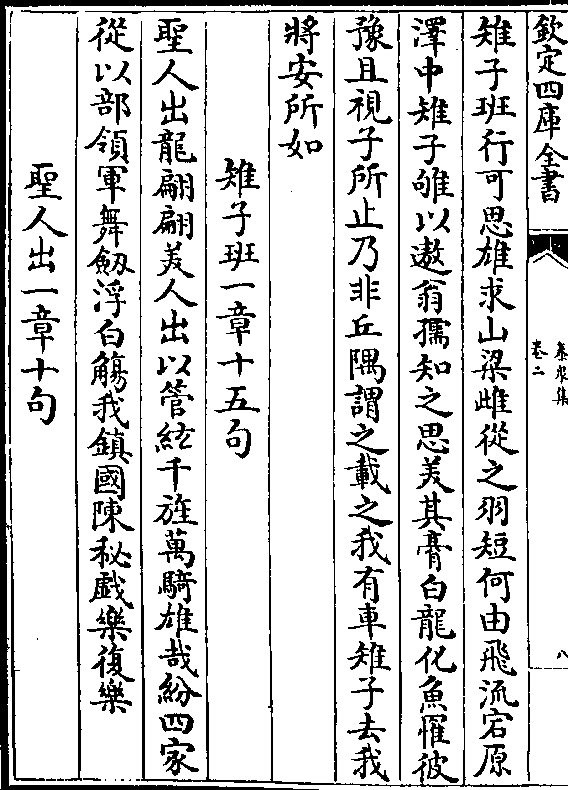 欽定四庫全書
泰泉集
卷二
八
雉子班行可思雄求山梁雌從之羽短何由飛流宕原
澤中雉子雊以遨翁孺知之思美其膏白龍化魚罹彼
豫且視子所止乃非丘隅謂之載之我有車雉子去我
將安所如
雉子班一章十五句
聖人出龍翩翩美人出以管絃千旌萬騎雄哉紛四家
從以部領軍舞劔浮白觴我鎮國陳秘戯樂復樂
聖人出一章十句